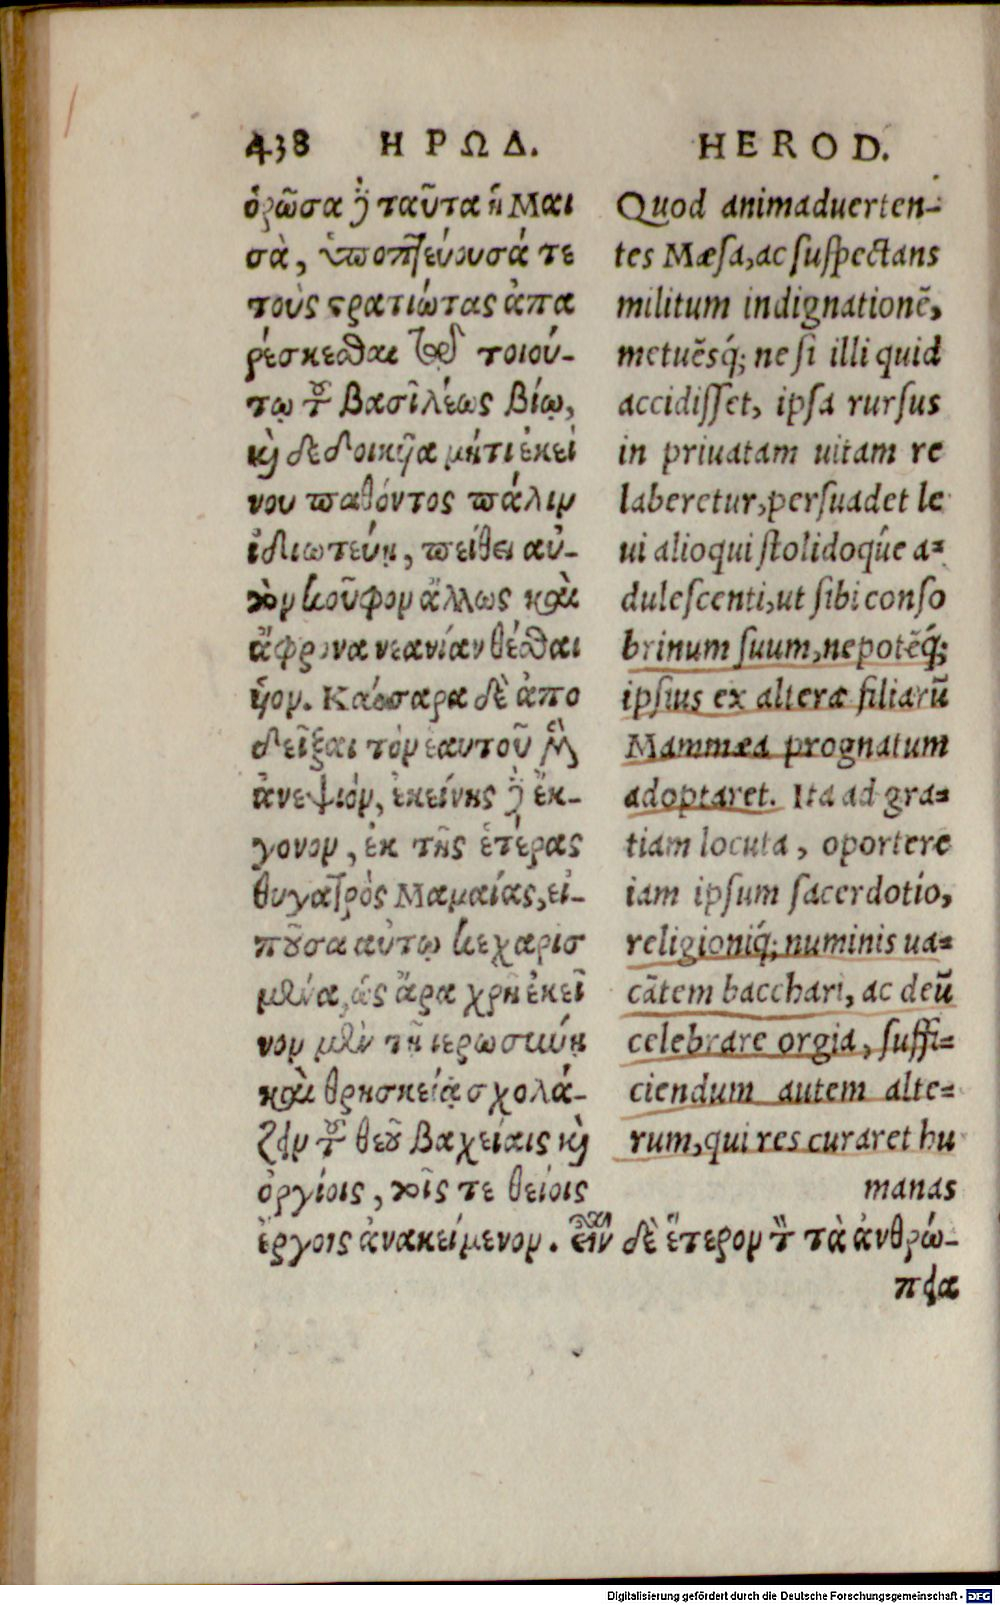 438 ΗΡΩΔ.
ὁρῶσα δὲ ταῦτα ἡ Μαι
σὰ, ὑποπτεύουσά τε
τοὺς στρατιώτας ἀπα
ρέσκεσθαι τῷ τοιού-
τῳ τοῦ βασιλέως βίῳ,
καὶ δεδοικυῖα μήτι ἐκεί
νου παθόντος πάλιν
ἰδιωτεύῃ, πείθει αὐ-
τὸν κοῦφον ἄλλως καὶ
ἄφρονα νεανίαν θέσθαι
υἱον. Καίσαρα δὲ ἀπο
δεῖξαι τὸν ἑαυτοῦ μὲν
ἀνεψιόν, ἐκείνης δὲ ἔκ-
γονον, ἐκ τῆς ἑτέρας
θυγατρὸς Μαμαίας, εἰ-
ποῦσα αὐτῳ κεχαρισ
μένα, ὡς ἄρα χρὴ ἐκεῖ
νον μὲν τῇ ιερωσύνῃ
καὶ θρησκείᾳ σχολά-
ζειν τοῦ θεοῦ βαχείαις καὶ
ὀργίοις, τοῖς τε θείοις
ἔργοις ἀνακείμενον. εἶναι δὲ ἕτερον τὸν τὰ ἀνθρώ-
πεια
HEROD.
Quod animaduerten-
tes Mæsa, ac suspectans
militum indignationē,
metuēsq́; ne si illi quid
accidisset, ipsa rursus
in priuatam uitam re
laberetur, persuadet le
ui alioqui stolidoq́ue a-
dulescenti, ut sibi conso
brinum suum, nepotēq́;
ipsius ex altera filiarū
Mammæa prognatum
adoptaret. Ita ad gra-
tiam locuta, oportere
iam ipsum sacerdotio,
religioniq́; numinis ua-
cātem bacchari, ac deū
celebrare orgia, suffi-
ciendum autem alte-
rum, qui res curaret hu
manas
Digitalisierung gefördert durch die Deutsche Forschungsgemeinschaft - DFG